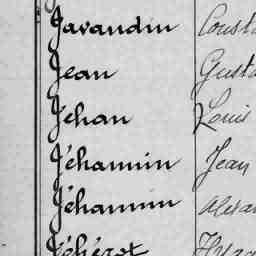 Javandin Const
Jean Gusta
Jehan Louis
Jéhannin Jean
Jéhannin Alexan
Jéhérot